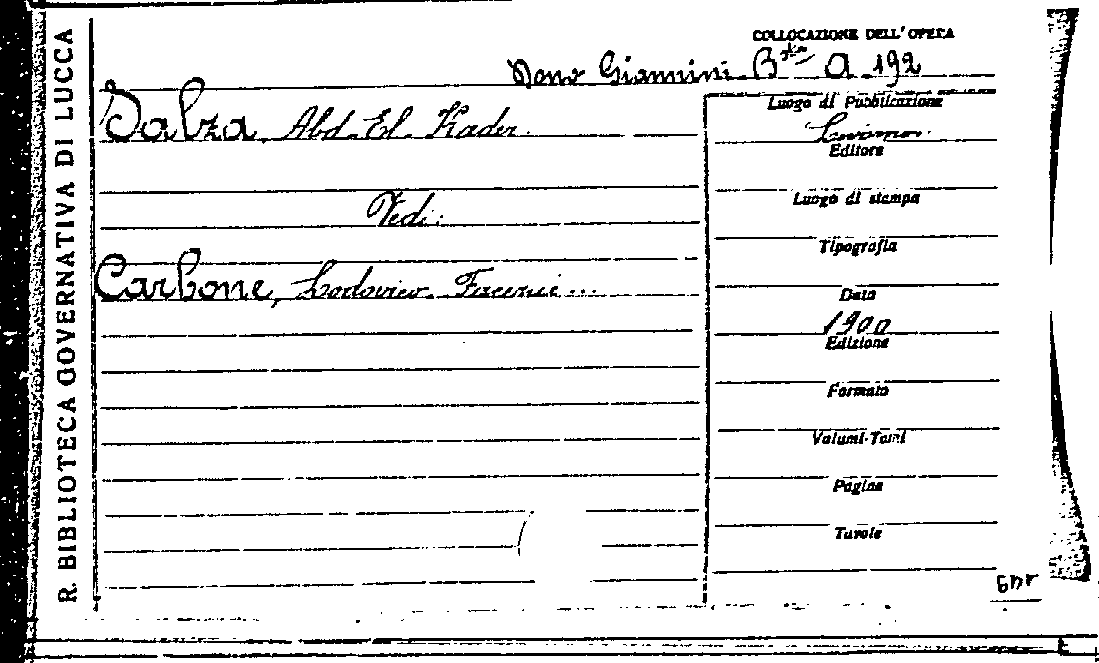 R. BIBLIOTECA GOVERNATIVA DI LUCCA
COLLOCAZIONE DELL'OPERA
Dono Giannini B.ta A 192
Salza, Abd-El-Kader.
Vedi:
Carbone, Lodovico. Facezie...
Luogo di Pubblicazione
Livorno.
Editore
Luogo di stampa
Tipografia
Data
1900
Edizione
Formato
Volumi-Tomi
Pagine
Tavole